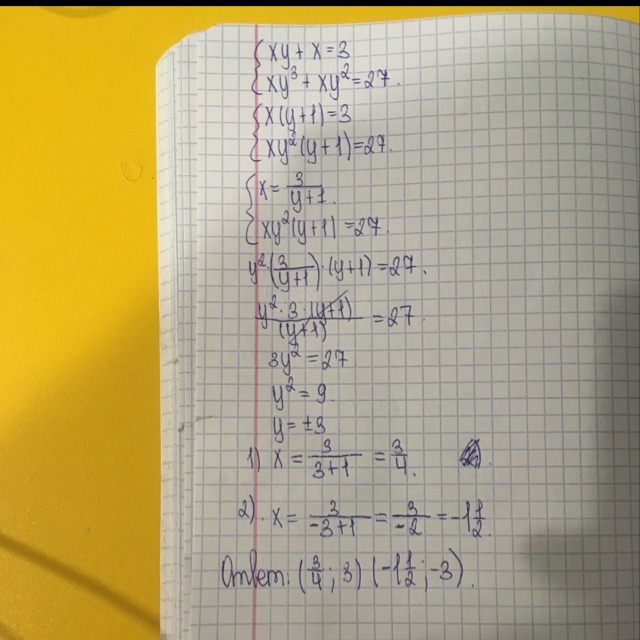 {xy + x = 3
{xy³ + xy² = 27.
{x(y+1) = 3
{xy²(y+1) = 27.
{x = 3/(y+1).
{xy²(y+1) = 27.
y²·(3/(y+1))·(y+1) = 27.
(y²·3·(y+1))/(y+1) = 27.
3y² = 27.
y² = 9.
y = ±3
1) x = 3/(3+1) = 3/4.
2). x = 3/(-3+1) = 3/(-2) = -1 1/2.
Ответ: (3/4; 3) (-1 1/2; -3).